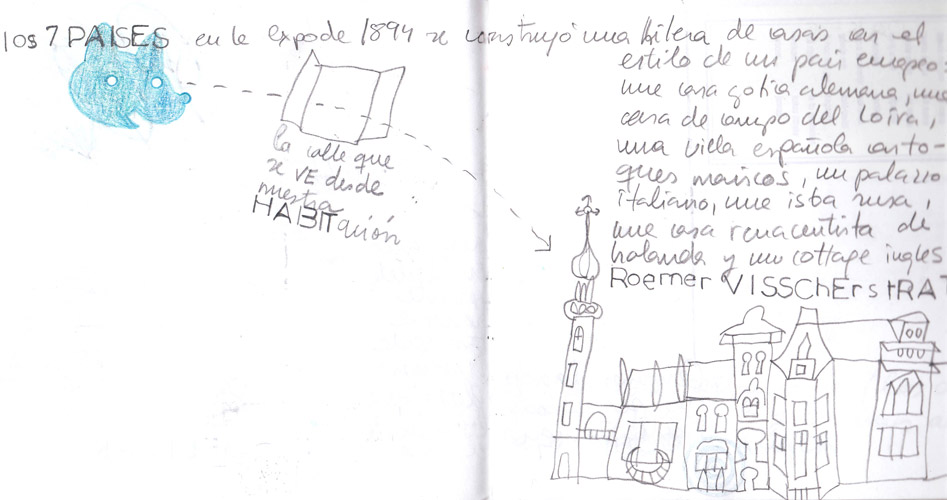 los 7 PAISES en la expo de 1894 se construyó una hilera de casas en el
estilo de un pais europeo:
une casa gotica alemana, une
casa de campo del Loira,
una villa española con to-
ques mariscos, un palazzo
italiano, une isba rusa,
une casa renacentista de
holanda y un cottage ingles
Roemer VISSChErstRAT
la calle que
se VE desde
nuestra
HABITación